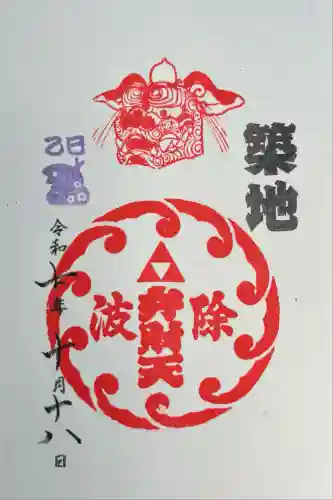 築地
巳日
波除
弁財天
令和七年十月十八日